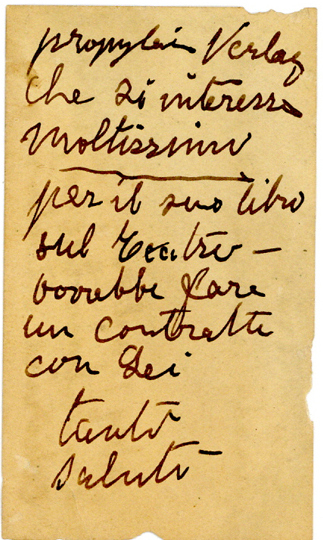 propyläen Verlag
che si interessa
moltissimo
per il suo libro
sul Teatro —
vorrebbe fare
un contratto
con Lei
tanti
saluti